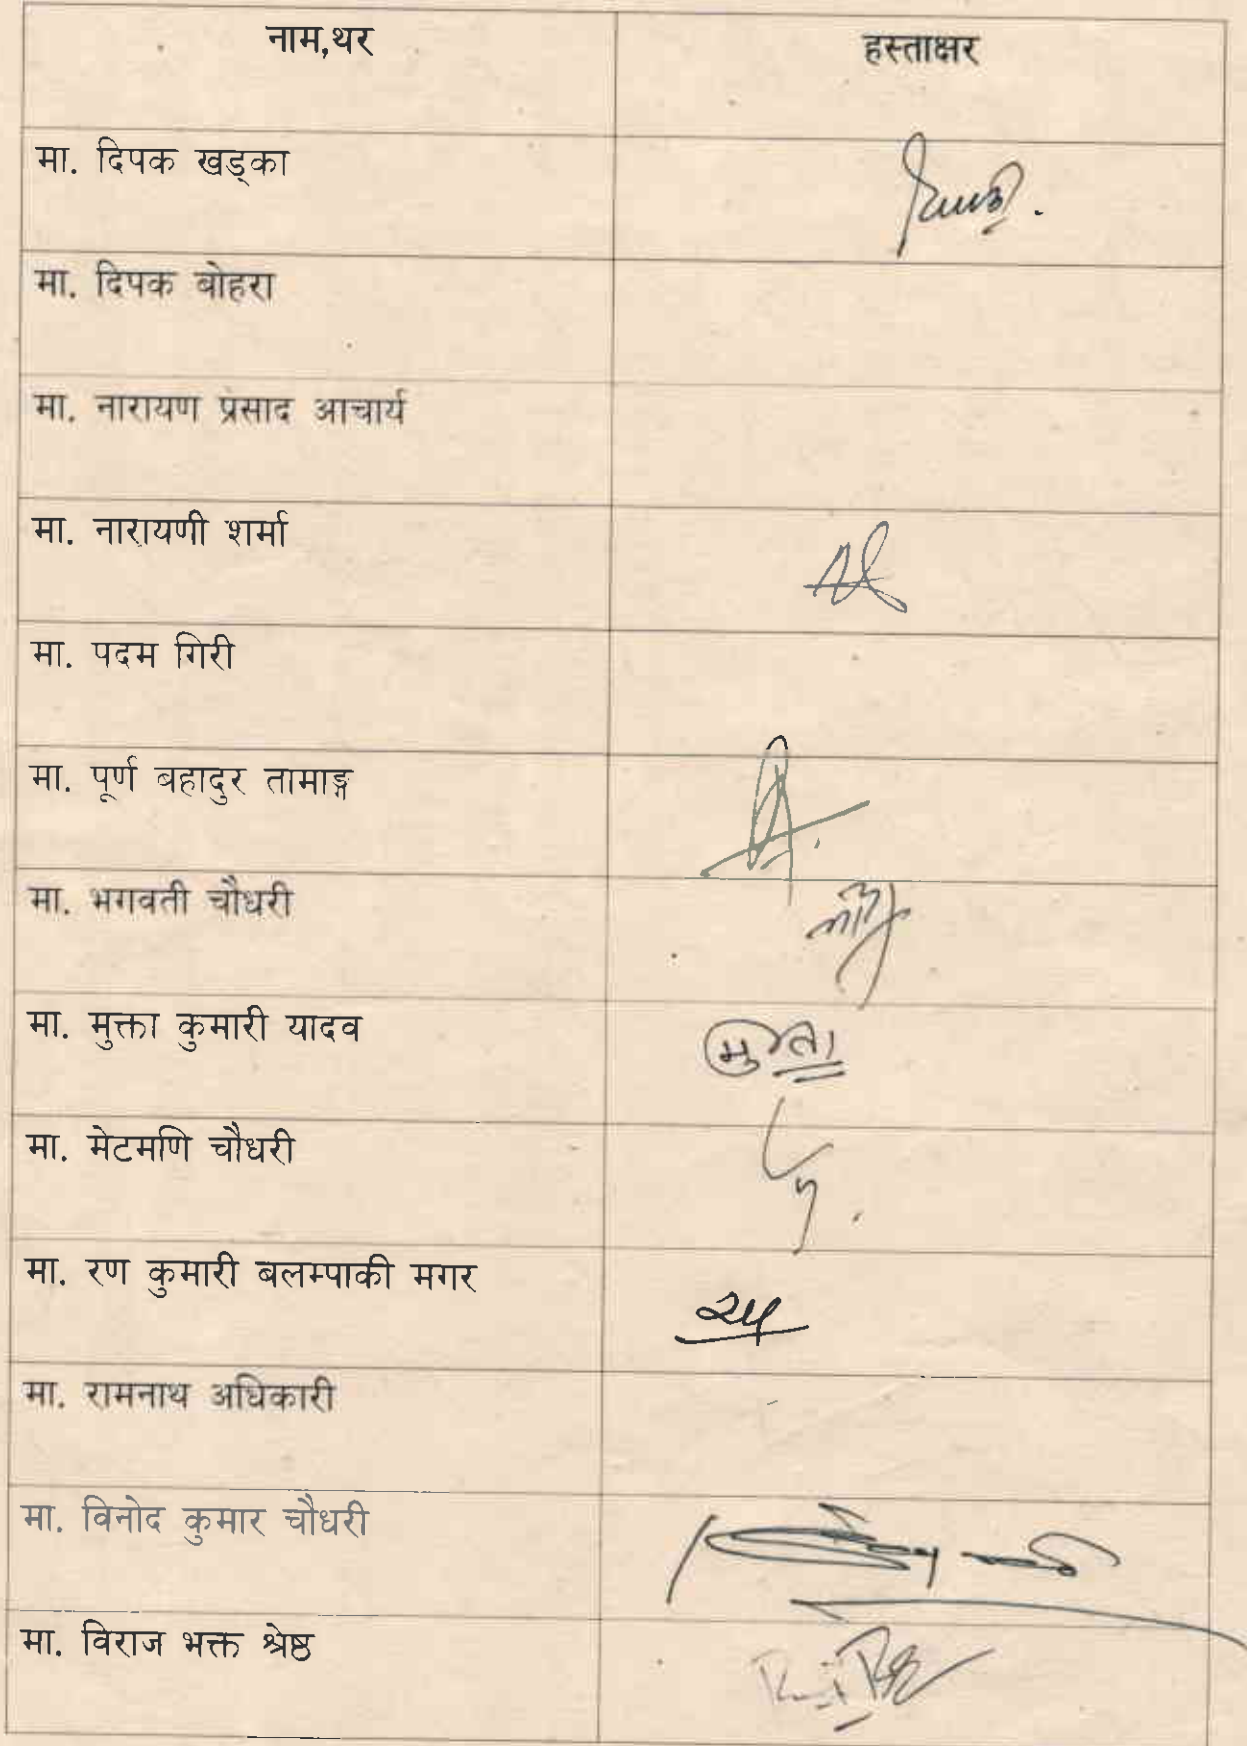 नाम,थर हस्ताक्षर
मा. दिपक खड्का
मा. दिपक बोहरा
मा. नारायण प्रसाद आचार्य
मा. नारायणी शर्मा
मा. पदम गिरी
मा. पूर्ण बहादुर तामाङ्ग
मा. भगवती चौधरी
मा. मुक्ता कुमारी यादव मुक्ता
मा. मेटमणि चौधरी
मा. रण कुमारी बलम्पाकी मगर
मा. रामनाथ अधिकारी
मा. विनोद कुमार चौधरी
मा. विराज भक्त श्रेष्ठ